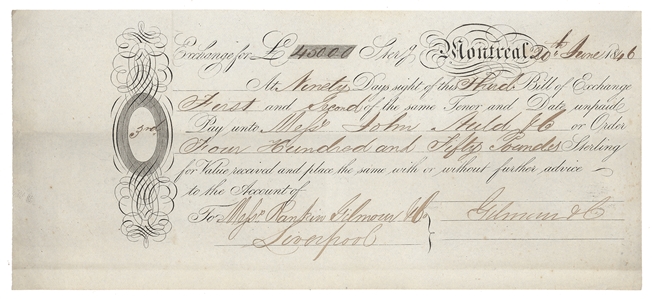 Exchange for £ 450.0.0 Sterg Montreal 20th June 1846
At Ninety Days sight of this Third Bill of Exchange
First and Second of the same Tenor and Date unpaid
3rd
Pay unto Messrs John & Co or Order
Four Hundred and Fifty Pounds Sterling
for Value received and place the same with or without further advice
to the Account of
To Messrs Rankin Gilmour & Co
Gilmour & Co
Liverpool